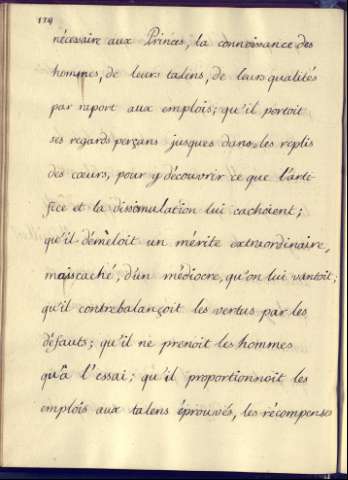 124
nécessaire aux Princes, la connoissance des
hommes, de leurs talens, de leurs qualités
par raport aux emplois; qu'il portoit
ses regards perçans jusques dans les replis
des cœurs, pour y découvrir ce que l'arti-
fice et la dissimulation lui cachoient;
qu'il démêloit un mérite extraordinaire,
mais caché, d'un médiocre, qu'on lui vantoit;
qu'il contrebalançoit les vertus par les
défauts; qu'il ne prenoit les hommes
qu'à l'essai; qu'il proportionnoit les
emplois aux talens éprouvés, les récompenses